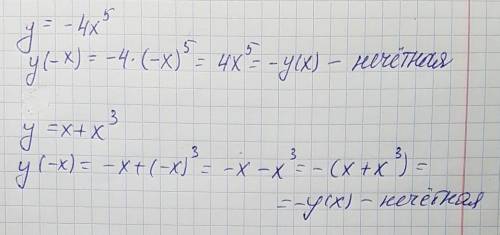 y = -4x⁵
y(-x) = -4·(-x)⁵ = 4x⁵ = -y(x) – нечётная
y = x + x³
y(-x) = -x + (-x)³ = -x - x³ = -(x + x³) =
= -y(x) – нечётная